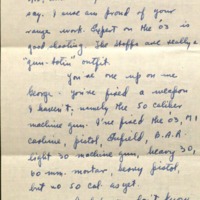 say. I sure am proud of your
range work. Expert on the 03 is
good shooting. The Hoffs are really a
"gun-totin" outfit.
You're one up on me
George - you've fired a weapon
I haven't; namely the 50 caliber
machine gun. I've fired the 03, M1
carbine, pistol, Enfield, B.A.R
light 30 machine gun, heavy 30,
60 mm. mortar, heavy pistol,
but no 50 cal as yet.
don't know